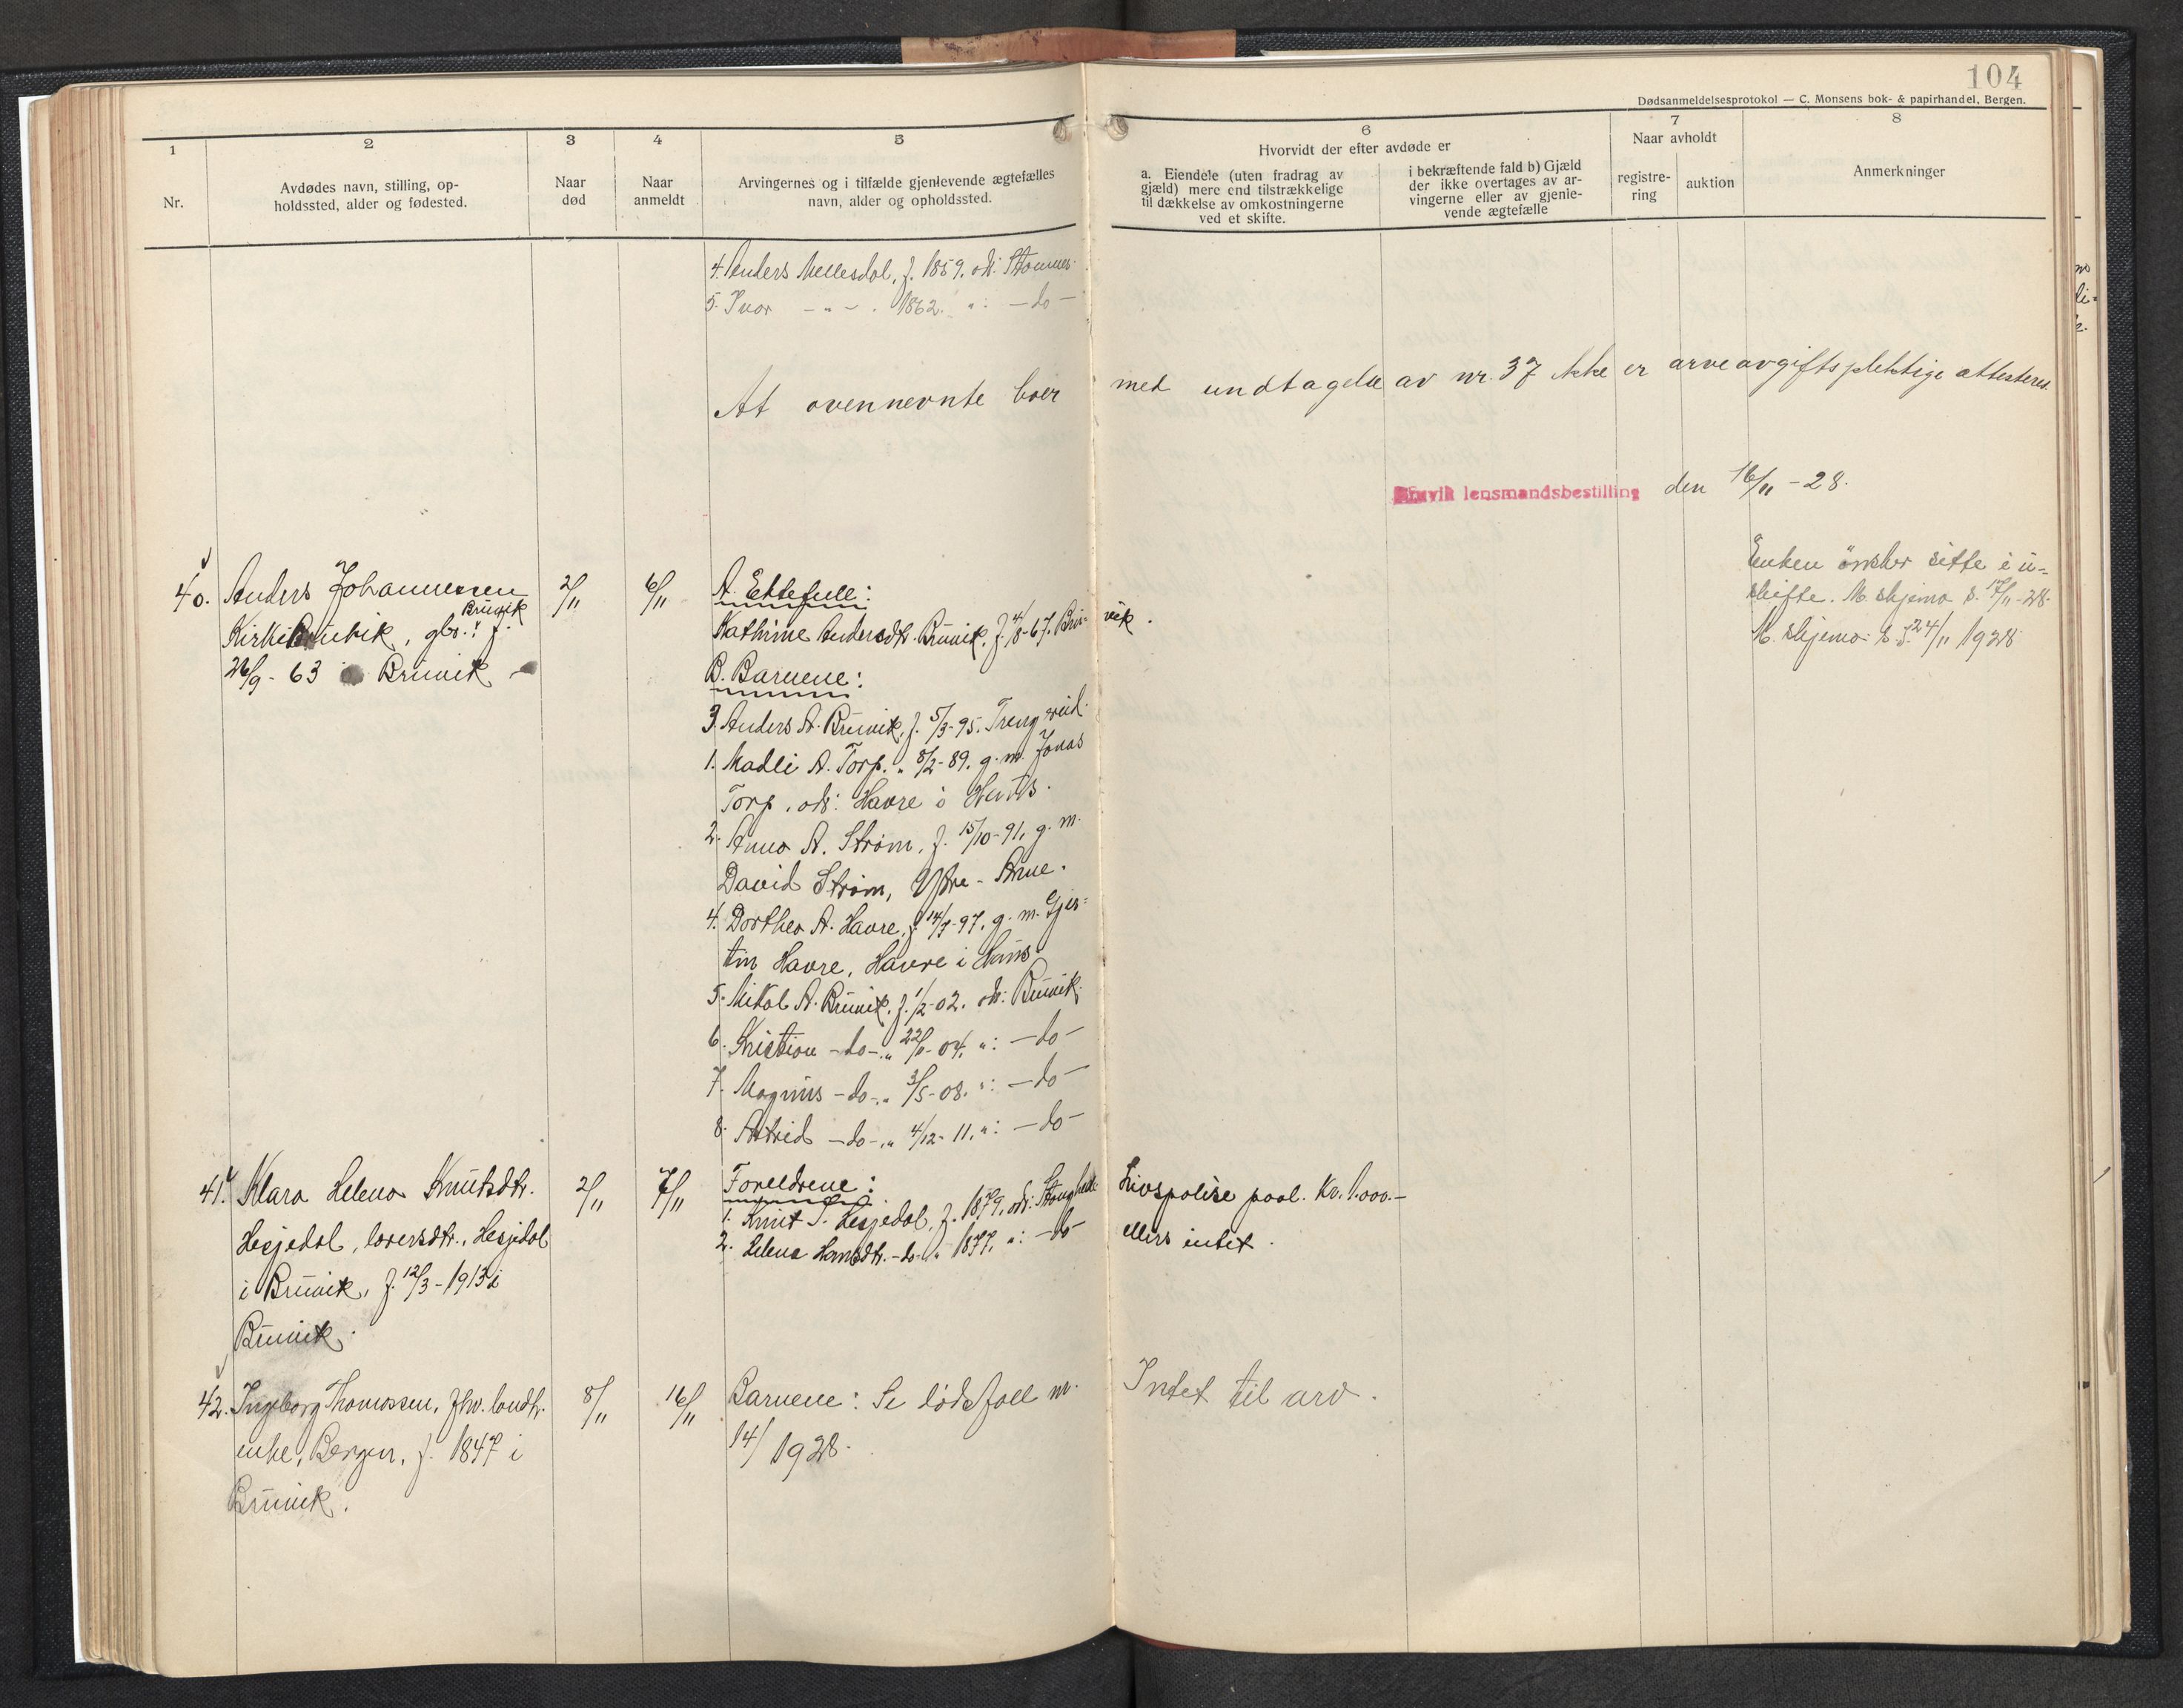 104
Dødsanmeldelsesprotokol — C. Monsens bok- & papirhandel, Bergen.
1
Nr.
2
Avdødes navn, stilling, op-
holdssted, alder og fødested.
3
Naar
død
4
Naar
anmeldt
5
Arvingernes og i tilfælde gjenlevende ægtefælles
navn, alder og opholdssted.
6
Hvorvidt der efter avdøde er
a. Eiendele (uten fradrag av
gjæld) mere end tilstrækkelige
til dækkelse av omkostningerne
ved et skifte.
i bekræftende fald b) Gjæld
der ikke overtages av ar-
vingerne eller av gjenle-
vende ægtefælle
7
Naar avholdt
registre-
ring
auktion
8
Anmerkninger
4. Anders Mellesdal, f. 1859. ads:
5. Ivar - " - . 1862. ": - do -
At ovennevnte boer med undtagelse av nr. 37 ikke er arveavgiftspliktige attesteres.
lensmandsbestilling den 16/11 - 28.
40. Anders Johannessen
Bruvik
Kirkebruvik, gbr. f.
26/9 - 63 i Bruvik
2/11
6/11
A. Ektefelle:
Kathrine Andersdtr. Bruvik, f. 4/8-67. Bru- vik.
B. Barnene:
3. Anders A. Bruvik, f. 5/3-95. Trengereid.
1. Madli A. Torp. " 8/2-89. g. m. Jonas
Torp, ads: Havre i Haus.
2. Anna A. Strøm, f. 15/10-91, g. m.
David Strøm, Ytre-Arne.
4. Dorthea A. Havre, f. 14/9-97, g. m. Gjer-
tin Havre, Havre i Haus.
5. Mikal A. Bruvik, f. 1/2-02. ads: Bruvik.
6. Kristian - do - " 04. ": - do -
7. Magnus - do - " 3/5-08. ": - do -
8. Astrid - do - " 4/12-11. ": - do -
Enken ønsker sitte i u-
skifte. M. skjema s. 17/11-28.
M. skjema t. s. 24/11 1928
41. Klara Helena Knutsdtr.
Hesjedal, Hesjedal
i Bruvik, f. 12/3-1913 i
Bruvik.
2/11
7/11
Foreldrene:
1. Knut J. Hesjedal, f. 1879, ads:
2. Helena Hansdtr. - do - " 1877. ": - do -
Livspolise paal. Kr. 1.000.-
ellers intet.
42. Ingeborg Thomassen, fhv.
enke, Bergen, f. 1847 i
Bruvik.
8/11
16/11
Barnene: Se dødsfall nr.
14/1928.
Intet til arv.